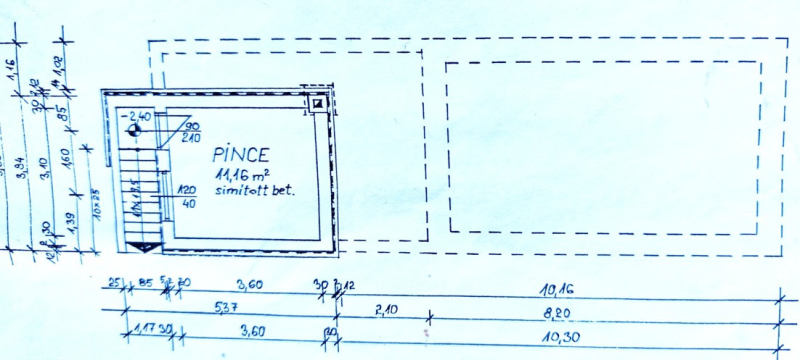 -2,40
90
210
PINCE
11,16 m²
simított bet.
120
40
10×25
1,16
30
85
1,02
3,84
3,10
1,60
1,39
30
12
25
85
30
3,60
30
12
10,16
5,37
2,10
8,20
1,17
30
3,60
30
10,30